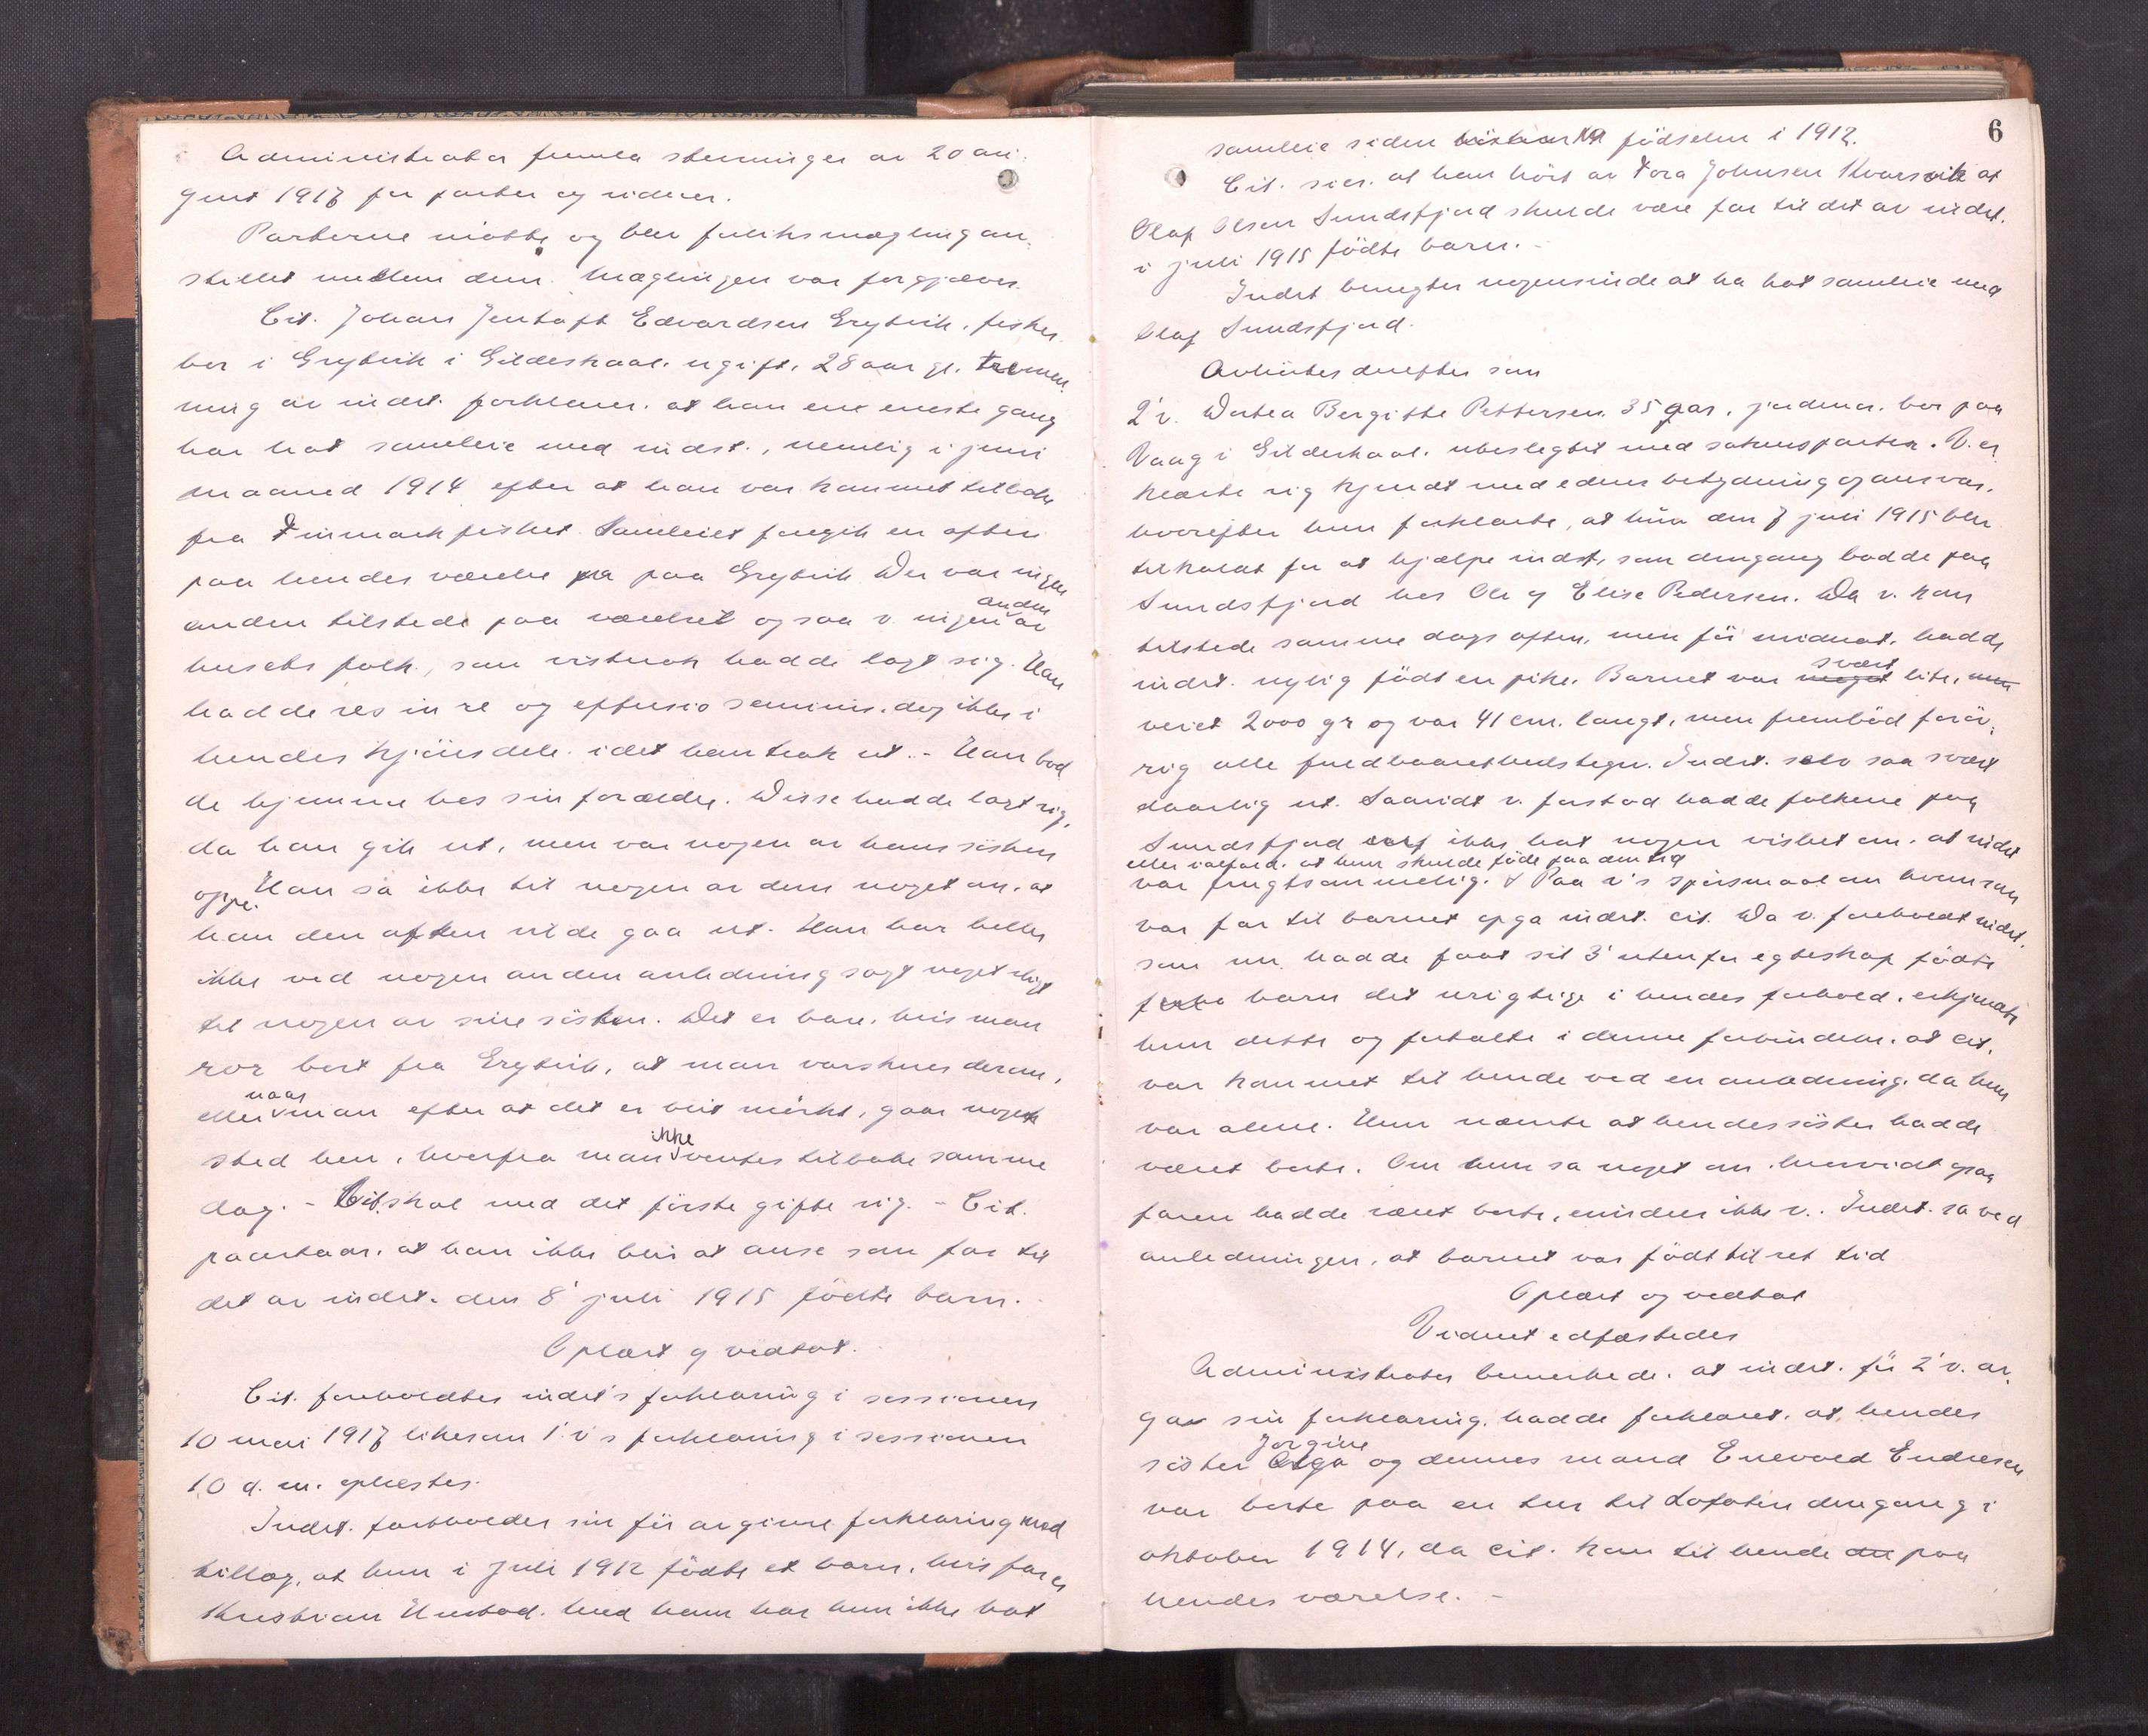 Administrator fremla stevninger av 20 au-
gust 1917 for parter og vidner.
Parterne møtte og blev forliksmægling an-
stillet mellem dem. Mæglingen var forgjæves.
Cit. Johan Jentoft Edvardsen Grytvik, fisker
bor i Grytvik i Gildeskaal. ugift. 28 aar gl. tremen-
ning av indst. forklarer. at han en eneste gang
har hat samleie med indst., nemlig i juni
maaned 1914 efter at han var kommet tilbake
fra Finmarkfisket. Samleiet foregik en aften
paa hendes værelse paa Grytvik. Der var ingen
anden tilstede paa værelset og saa v. ingen anden av
husets folk, som vistnok hadde lagt sig. Han
hadde res in re og effusio seminis. dog ikke i
hendes kjønsdele. idet han trak ut. - Han bod-
de hjemme hos sin forældre. Disse hadde lagt sig,
da han gik ut, men var nogen av hans søsken
oppe. Han sa ikke til nogen av dem noget om. at
han den aften vilde gaa ut. Han har heller
ikke ved nogen anden anledning sagt noget sligt
til nogen av sine søsken. Det er bare. hvis man
ror bort fra Grytvik, at man varskuer derom,
eller naar man efter at det er blit mørkt, gaar noget
sted hen, hvorfra man ikke ventes tilbake samme
dag. - Cit. skal med det første gifte sig. - Cit.
paastaar. at han ikke blir at anse som far til
det av indst. den 8' juli 1915 fødte barn.
Oplæst og vedtat.
Cit. foreholdtes indst's forklaring i sessionen
10 mai 1917 likesom 1' v's forklaring i sessionen
10 d. m. oplæstes.
Indst. fastholder sin før avgivne forklaring med
tillæg, at hun i juli 1912 fødte et barn, hvis far er
Kristian Unstad. Med ham har hun ikke hat
6
samleie siden fødselen i 1912.
Cit. sier. at han hørt av Tora Johnsen Kvarsvik at
Olaf Olsen Sundsfjord skulde være far til det av indst.
i juli 1915 fødte barn. -
Indst benegter nogensinde at ha hat samleie med
Olaf Sundsfjord.
Avhørtes derefter som
2' v. Dortea Bergitte Pettersen. 35 aar, jordmor. bor paa
Vaag i Gildeskaal. ubeslegtet med saksparten. V. er
klarte sig kjendt med edens betydning og ansvar,
hvorefter hun forklarte, at hun den 7 juli 1915 blev
tilkaldt for at hjælpe indst, som dengang bodde paa
Sundsfjord hos Ole og Elise Pedersen. Da v. kom
tilstede samme dags aften, men før midnat. hadde
indst. nylig født en pike. Barnet var meget svært lite, men
veiet 2000 gr og var 41 cm. langt, men frembød forøv-
rig alle fuldbaarethedstegn. Indst. selv saa svært
daarlig ut. Saavidt v. forstod hadde folkene paa
Sundsfjord ikke hat nogen vished om. at indst
eller ialfald. at hun skulde føde paa den tid
var frugtsommelig. Paa v's spørsmaal om hvem som
var far til barnet opga indst. cit. Da v. foreholdt indst.
som nu hadde faat sit 3' utenfor egteskap fødte
barn det urigtige i hendes forhold. erkjendte
hun dette og fortalte i denne forbindelse. at cit.
var kommet til hende ved en anledning. da hun
var alene. Hun nævnte at hendes søster hadde
været borte. Om hun sa noget om. hvorvidt ogsaa
faren hadde været borte, mindes ikke v. Indst. sa ved
anledningen. at barnet var født til ret tid
Oplæst og vedtat
Vidnet edfæstedes
Administrator bemerkede. at indst. før 2' v. av-
gav sin forklaring. hadde forklaret. at, hendes
søster Olga Jorgine og dennes mand Enevold Endresen
var borte paa en tur til Lofoten dengang i
oktober 1914, da cit. kom til hende paa
hendes værelse. -